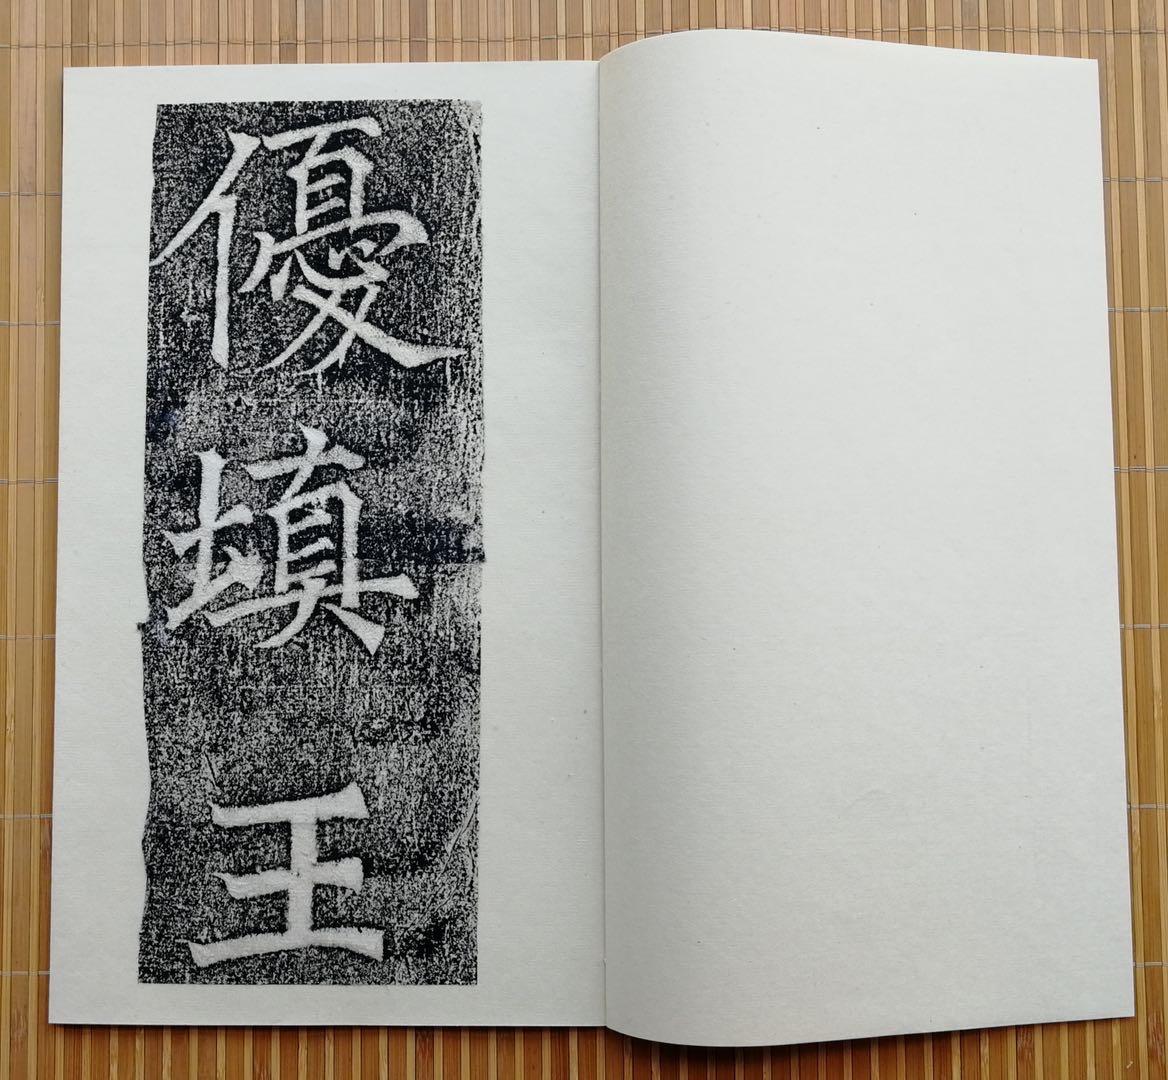 優填王